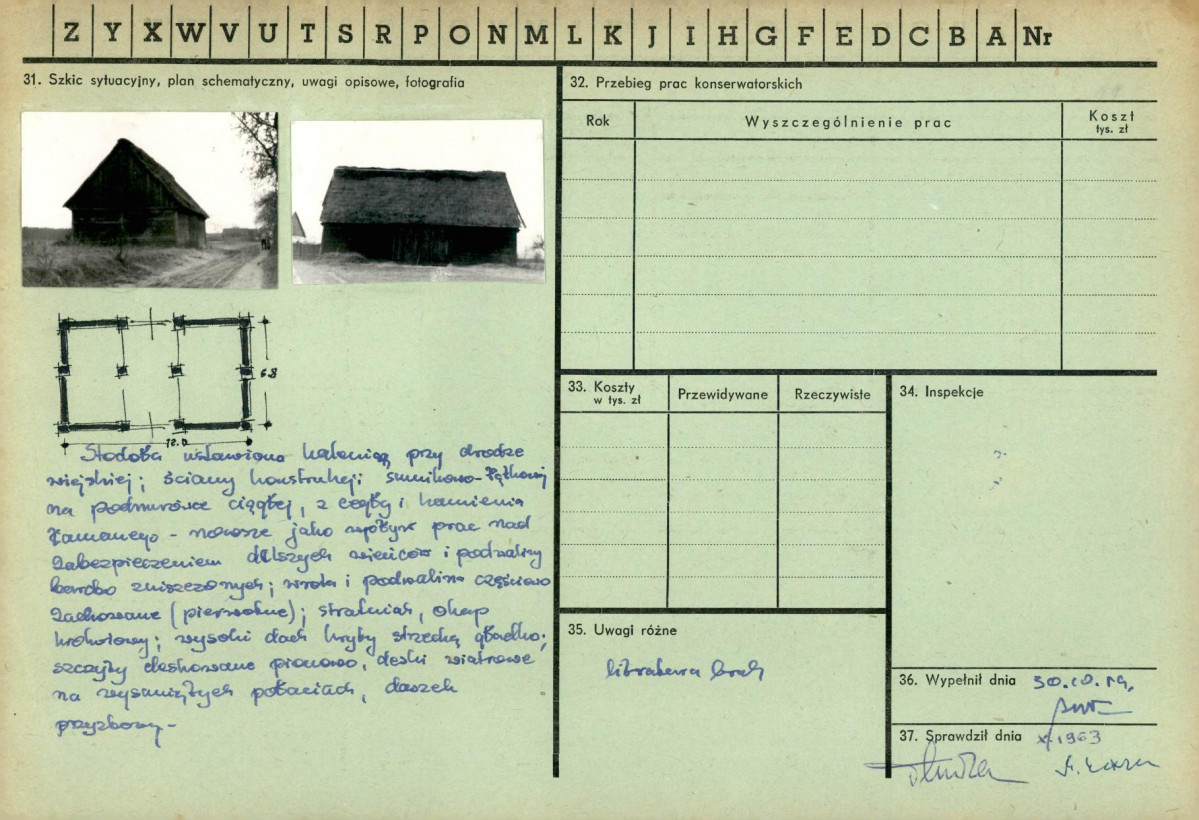 Z Y X W V U T S R P O N M L K J I H G F E D C B A Nr
31. Szkic sytuacyjny, plan schematyczny, uwagi opisowe, fotografia
6.8
12.0
Stodoła ustawiona kalenicą przy drodze
wiejskiej; ściany konstrukcji sumikowo-łątkowej
na podmurówce ciągłej, z cegły i kamienia
łamanego - nowsze jako wpływ prac nad
zabezpieczeniem dalszych wieńców i podwaliny
bardzo zniszczonych; wrota i podwalina częściowo
zachowane (pierwotne); okap
krokwiowy; wysoki dach kryty strzechą gładko;
szczyty deskowane pionowo, deski wiatrowe
na wysuniętych połaciach, daszek
przyzbowy -
32. Przebieg prac konserwatorskich
Rok
Wyszczególnienie prac
Koszt
tys. zł
33. Koszty
w tys. zł
Przewidywane
Rzeczywiste
34. Inspekcje
35. Uwagi różne
literatura brak
36. Wypełnił dnia
37. Sprawdził dnia X.1963